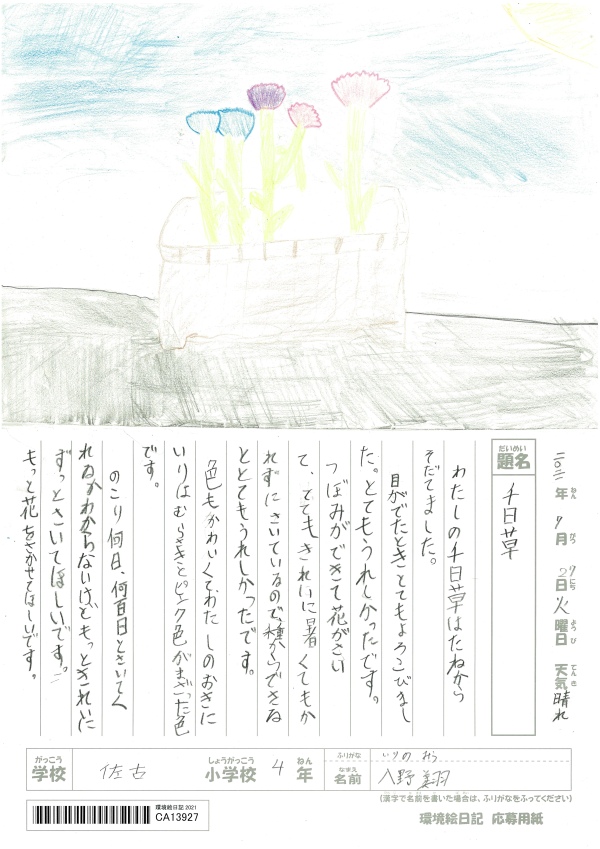 二〇二一年ねん9月がつ 日にち火曜日ようび天気てんき晴れ
題名だいめい
千日草
わたしの千日草はたねから
そだてました。
目がでたときとてもよろこびまし
た。とてもうれしかったです。
つぼみができて花がさい
て、とてもきれいに暑くてもか
れずにさいているので、種からできる
ととてもうれしかったです。
色もかわいくてわたしのおきに
いりはむらさきとピンク色がまざった色
です。
のこり何日、何百日とさいてく
れるかわからないけどもっときれいに
ずっとさいてほしいです。
もっと花をさかせてほしいです。
学校がっこう 佐古 小学校しょうがっこう 4 年ねん
ふりがな いりの みう
名前なまえ 入野 美羽
(漢字で名前を書いた場合は、ふりがなをふってください)
環境絵日記2021
CA13927
環境絵日記 応募用紙